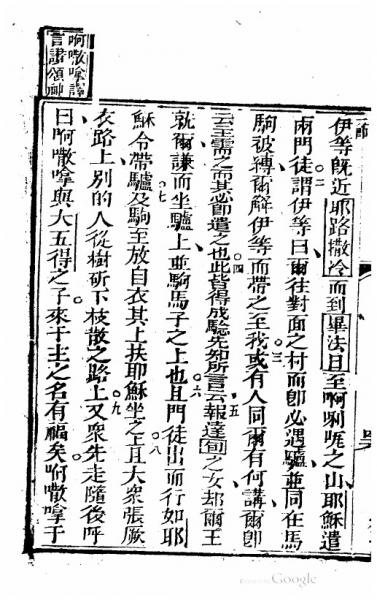 啊嗽嗱譯
言讃頌神
伊等既近耶路撒冷而到畢法日至啊唎呢之山耶穌遣
兩門徒謂伊等曰爾往對面之村而即必遇驢並同在馬
駒被縛爾解伊等而帶之至我或有人同爾有何講爾即
云主需之而其必即遣之也此皆得成驗先知所言云報達旬之女却爾王
就爾謙而坐驢上並駒馬子之上也且門徒出而行如耶
穌令帶驢及駒至放自衣其上扶耶穌坐之上且大衆張厥
衣路上別的人從樹斫下枝散之路上又衆先走隨後呼
曰啊嗽嗱與大五得之子來于主之名有福矣啊嗽嗱于
Google